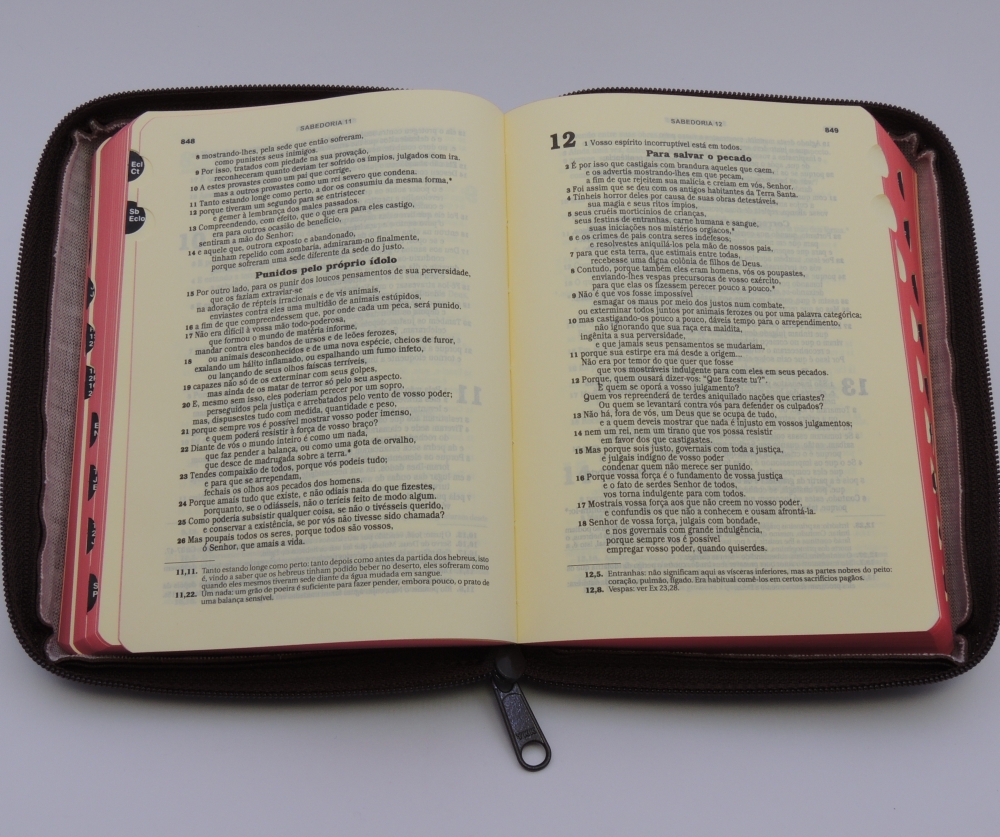 848
SABEDORIA 11
8 mostrando-lhes, pela sede que então sofreram,
como punistes seus inimigos.
9 Por isso, tratados com piedade na sua provação,
reconheceram quanto deviam ter sofrido os ímpios, julgados com ira.
10 A estes provastes como um pai que corrige,
mas a outros provastes como um rei severo que condena.
11 Tanto estando longe como perto, a dor os consumiu da mesma forma,*
12 porque tiveram um segundo para se entristecer
e gemer à lembrança dos males passados.
13 Compreendendo, com efeito, que o que era para eles castigo,
era para outros ocasião de benefício,
sentiram a mão do Senhor;
14 e aquele que, outrora exposto e abandonado,
tinham repelido com zombaria, admiraram-no finalmente,
porque sofreram uma sede diferente da sede do justo.
Punidos pelo próprio ídolo
15 Por outro lado, para os punir dos loucos pensamentos de sua perversidade,
que os faziam extraviar-se
na adoração de répteis irracionais e de vis animais,
enviastes contra eles uma multidão de animais estúpidos,
16 a fim de que compreendessem que, por onde cada um peca, será punido.
17 Não era difícil à vossa mão todo-poderosa,
que formou o mundo de matéria informe,
mandar contra eles bandos de ursos e de leões ferozes,
18 ou animais desconhecidos e de uma nova espécie, cheios de furor,
exalando um hálito inflamado, ou espalhando um fumo infeto,
ou lançando de seus olhos faíscas terríveis,
19 capazes não só de os exterminar com seus golpes,
mas ainda de os matar de terror só pelo seu aspecto.
20 E, mesmo sem isso, eles poderiam perecer por um sopro,
perseguidos pela justiça e arrebatados pelo vento de vosso poder;
mas, dispusestes tudo com medida, quantidade e peso,
21 porque sempre vos é possível mostrar vosso poder imenso,
e quem poderá resistir à força de vosso braço?
22 Diante de vós o mundo inteiro é como um nada,
que faz pender a balança, ou como uma gota de orvalho,
que desce de madrugada sobre a terra.*
23 Tendes compaixão de todos, porque vós podeis tudo;
e para que se arrependam,
fechais os olhos aos pecados dos homens.
24 Porque amais tudo que existe, e não odiais nada do que fizestes,
porquanto, se o odiásseis, não o teríeis feito de modo algum.
25 Como poderia subsistir qualquer coisa, se não o tivésseis querido,
e conservar a existência, se por vós não tivesse sido chamada?
26 Mas poupais todos os seres, porque todos são vossos,
ó Senhor, que amais a vida.
11,11. Tanto estando longe como perto: tanto depois como antes da partida dos hebreus, isto
é, vindo a saber que os hebreus tinham podido beber no deserto, eles sofreram como
quando eles mesmos tiveram sede diante da água mudada em sangue.
11,22. Um nada: um grão de poeira é suficiente para fazer pender, embora pouco, o prato de
uma balança sensível.
Ecl
Ct
Sb
Eclo
SABEDORIA 12
849
12 1 Vosso espírito incorruptível está em todos.
Para salvar o pecado
2 É por isso que castigais com brandura aqueles que caem,
e os advertis mostrando-lhes em que pecam,
a fim de que rejeitem sua malícia e creiam em vós, Senhor.
3 Foi assim que se deu com os antigos habitantes da Terra Santa.
4 Tínheis horror deles por causa de suas obras detestáveis,
sua magia e seus ritos ímpios,
5 seus cruéis morticínios de crianças,
seus festins de entranhas, carne humana e sangue,
suas iniciações nos mistérios orgíacos,*
6 e os crimes de pais contra seres indefesos;
e resolvestes aniquilá-los pela mão de nossos pais,
7 para que esta terra, que estimais entre todas,
recebesse uma digna colônia de filhos de Deus.
8 Contudo, porque também eles eram homens, vós os poupastes,
enviando-lhes vespas precursoras de vosso exército,
para que elas os fizessem perecer pouco a pouco.*
9 Não é que vos fosse impossível
esmagar os maus por meio dos justos num combate,
ou exterminar todos juntos por animais ferozes ou por uma palavra categórica;
10 mas castigando-os pouco a pouco, dáveis tempo para o arrependimento,
não ignorando que sua raça era maldita,
ingênita a sua perversidade,
e que jamais seus pensamentos se mudariam,
11 porque sua estirpe era má desde a origem...
Não era por temor do que quer que fosse
que vos mostráveis indulgente para com eles em seus pecados.
12 Porque, quem ousará dizer-vos: “Que fizeste tu?”.
E quem se oporá a vosso julgamento?
Quem vos repreenderá de terdes aniquilado nações que criastes?
Ou quem se levantará contra vós para defender os culpados?
13 Não há, fora de vós, um Deus que se ocupa de tudo,
e a quem deveis mostrar que nada é injusto em vossos julgamentos;
14 nem um rei, nem um tirano que vos possa resistir
em favor dos que castigastes.
15 Mas porque sois justo, governais com toda a justiça,
e julgais indigno de vosso poder
condenar quem não merece ser punido.
16 Porque vossa força é o fundamento de vossa justiça
e o fato de serdes Senhor de todos,
vos torna indulgente para com todos.
17 Mostrais vossa força aos que não creem no vosso poder,
e confundis os que não a conhecem e ousam afrontá-la.
18 Senhor de vossa força, julgais com bondade,
e nos governais com grande indulgência,
porque sempre vos é possível
empregar vosso poder, quando quiserdes.
12,5. Entranhas: não significam aqui as vísceras inferiores, mas as partes nobres do peito:
coração, pulmão, fígado. Era habitual comê-los em certos sacrifícios pagãos.
12,8. Vespas: ver Ex 23,28.